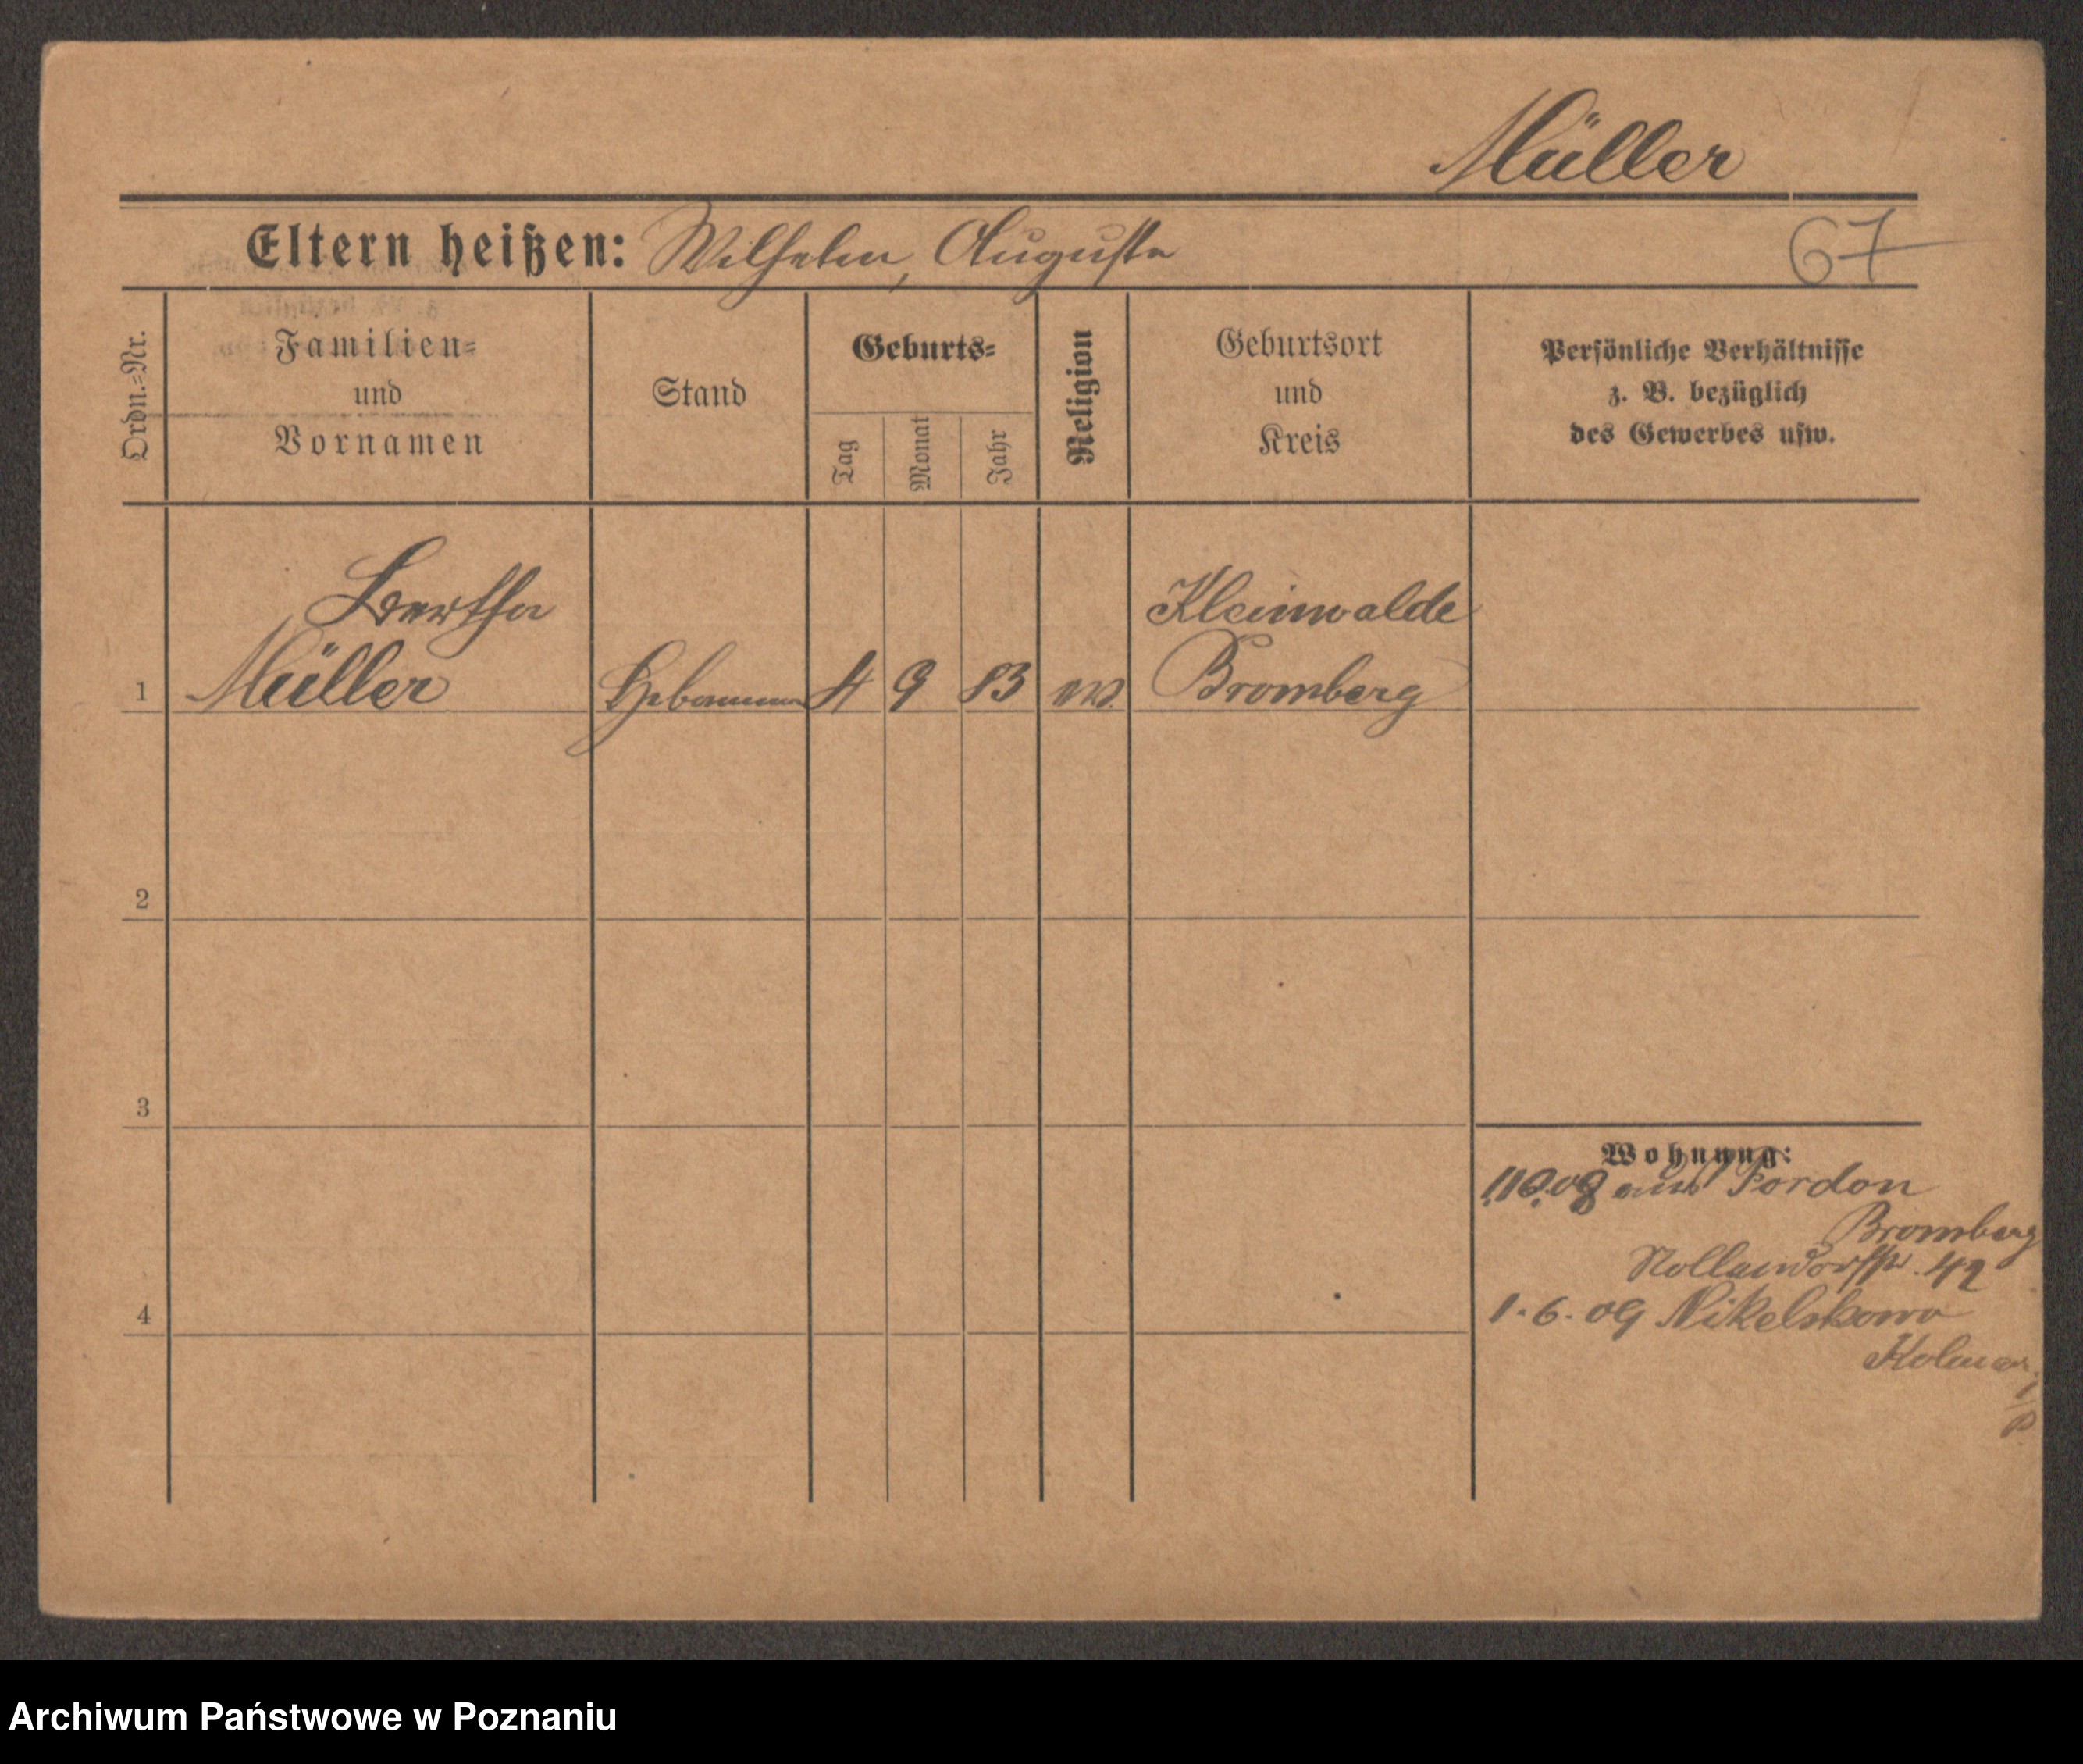 Müller
Eltern heißen: Wilhelm, Auguste
67
Ordn.-Nr.
Familien-
und
Vornamen
Stand
Geburts-
Tag
Monat
Jahr
Religion
Geburtsort
und
Kreis
Persönliche Verhältnisse
z. B. bezüglich
des Gewerbes usw.
Bertha Kleinwalde
1 Müller Hebamme 4 9 83 ev. Bromberg
2
3
Wohnung:
1.10.08 aus Fordon
Bromberg
Nollendorfstr. 42
4
1.6.09 Nikelskowo
Kolmar
i/P
Archiwum Państwowe w Poznaniu